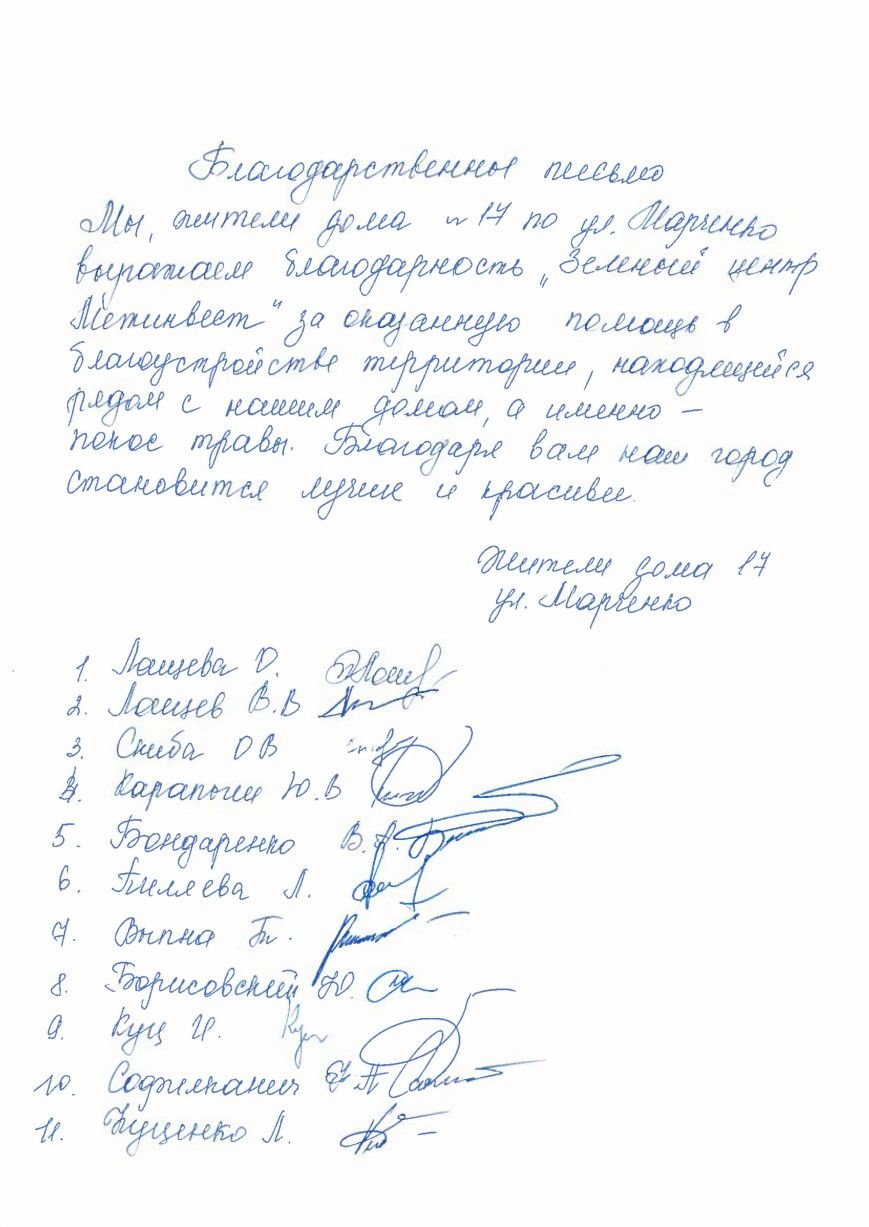 Благодарственное письмо
Мы, жители дома № 17 по ул. Марченко
выражаем благодарность „Зеленый центр
Метинвест" за оказанную помощь в
благоустройстве территории, находящейся
рядом с нашим домом, а именно –
покос травы. Благодаря вам наш город
становится лучше и красивее.
Жители дома 17
ул. Марченко
1. Лащева О.
2. Лащев В.В
3. Скиба ОВ
4. Ю.В
5. Бондаренко В.А.
6. Л.
7.
8. Борисовский Ю.
9. Куц И.
10.
11. Куценко Л.